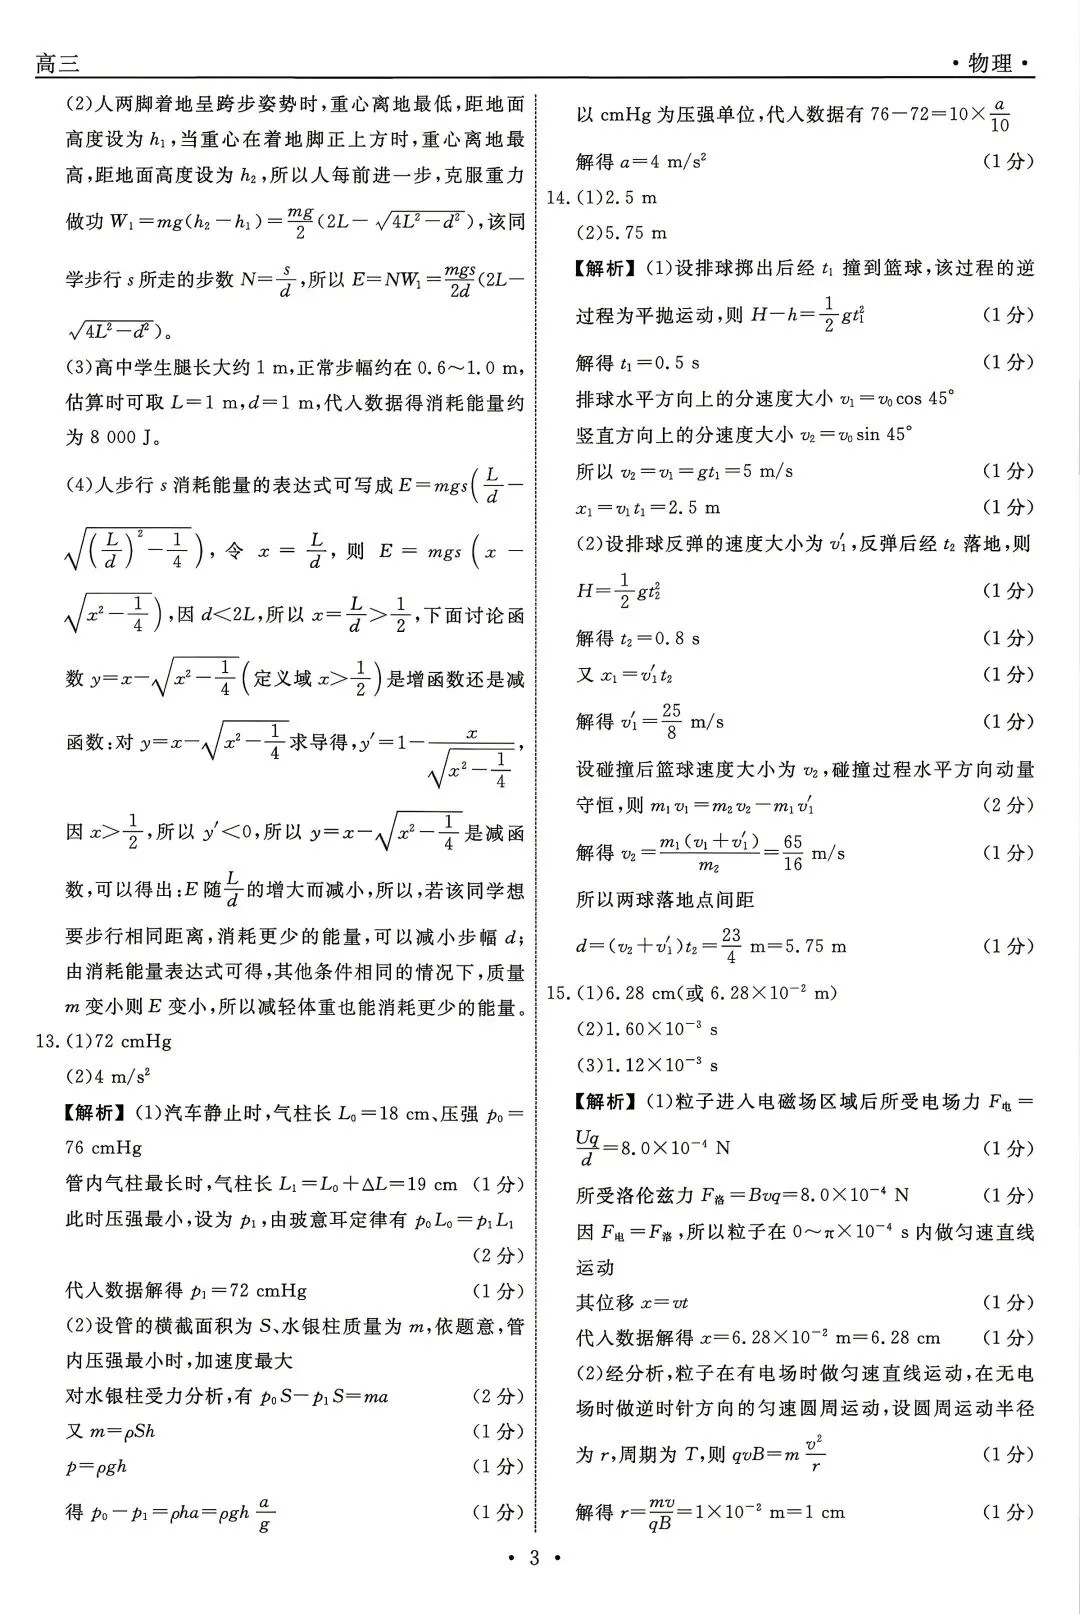 高三
·物理·
(2)人两脚着地呈跨步姿势时,重心离地最低,距地面
高度设为 h₁,当重心在着地脚正上方时,重心离地最
高,距地面高度设为 h₂,所以人每前进一步,克服重力
做功 W₁=mg(h₂-h₁)=mg/2(2L-√(4L²-d²)),该同
学步行 s 所走的步数 N=s/d,所以 E=NW₁=mgs/2d(2L-
√(4L²-d²))。
(3)高中学生腿长大约 1 m,正常步幅约在 0.6~1.0 m,
估算时可取 L=1 m,d=1 m,代人数据得消耗能量约
为 8 000 J。
(4)人步行 s 消耗能量的表达式可写成 E=mgs(L/d-
√((L/d)²-1/4)), 令 x=L/d, 则 E=mgs(x-
√(x²-1/4)),因 d<2L,所以 x=L/d>1/2,下面讨论函
数 y=x-√(x²-1/4)(定义域 x>1/2)是增函数还是减
函数:对 y=x-√(x²-1/4)求导得,y′=1-x/√(x²-1/4),
因 x>1/2,所以 y′<0,所以 y=x-√(x²-1/4)是减函
数,可以得出:E 随L/d的增大而减小,所以,若该同学想
要步行相同距离,消耗更少的能量,可以减小步幅 d;
由消耗能量表达式可得,其他条件相同的情况下,质量
m 变小则 E 变小,所以减轻体重也能消耗更少的能量。
13.(1)72 cmHg
(2)4 m/s²
【解析】(1)汽车静止时,气柱长 L₀=18 cm、压强 p₀=
76 cmHg
管内气柱最长时,气柱长 L₁=L₀+△L=19 cm (1分)
此时压强最小,设为 p₁,由玻意耳定律有 p₀L₀=p₁L₁
(2分)
代人数据解得 p₁=72 cmHg (1分)
(2)设管的横截面积为 S、水银柱质量为 m,依题意,管
内压强最小时,加速度最大
对水银柱受力分析,有 p₀S-p₁S=ma (2分)
又 m=ρSh (1分)
p=ρgh (1分)
得 p₀-p₁=ρha=ρgh a/g (1分)
以 cmHg 为压强单位,代人数据有 76-72=10×a/10
解得 a=4 m/s² (1分)
14.(1)2.5 m
(2)5.75 m
【解析】(1)设排球掷出后经 t₁ 撞到篮球,该过程的逆
过程为平抛运动,则 H-h=1/2gt₁² (1分)
解得 t₁=0.5 s (1分)
排球水平方向上的分速度大小 v₁=v₀cos 45°
竖直方向上的分速度大小 v₂=v₀sin 45°
所以 v₂=v₁=gt₁=5 m/s (1分)
x₁=v₁t₁=2.5 m (1分)
(2)设排球反弹的速度大小为 v₁′,反弹后经 t₂ 落地,则
H=1/2gt₂² (1分)
解得 t₂=0.8 s (1分)
又 x₁=v₁′t₂ (1分)
解得 v₁′=25/8 m/s (1分)
设碰撞后篮球速度大小为 v₂,碰撞过程水平方向动量
守恒,则 m₁v₁=m₂v₂-m₁v₁′ (2分)
解得 v₂=m₁(v₁+v₁′)/m₂=65/16 m/s (1分)
所以两球落地点间距
d=(v₂+v₁′)t₂=23/4 m=5.75 m (1分)
15.(1)6.28 cm(或 6.28×10⁻² m)
(2)1.60×10⁻³ s
(3)1.12×10⁻³ s
【解析】(1)粒子进入电磁场区域后所受电场力 F电=
Uq/d=8.0×10⁻⁴ N (1分)
所受洛伦兹力 F洛=Bvq=8.0×10⁻⁴ N (1分)
因 F电=F洛,所以粒子在 0~π×10⁻⁴ s 内做匀速直线
运动
其位移 x=vt (1分)
代人数据解得 x=6.28×10⁻² m=6.28 cm (1分)
(2)经分析,粒子在有电场时做匀速直线运动,在无电
场时做逆时针方向的匀速圆周运动,设圆周运动半径
为 r,周期为 T,则 qvB=m v²/r (1分)
解得 r=mv/qB=1×10⁻² m=1 cm (1分)
· 3 ·